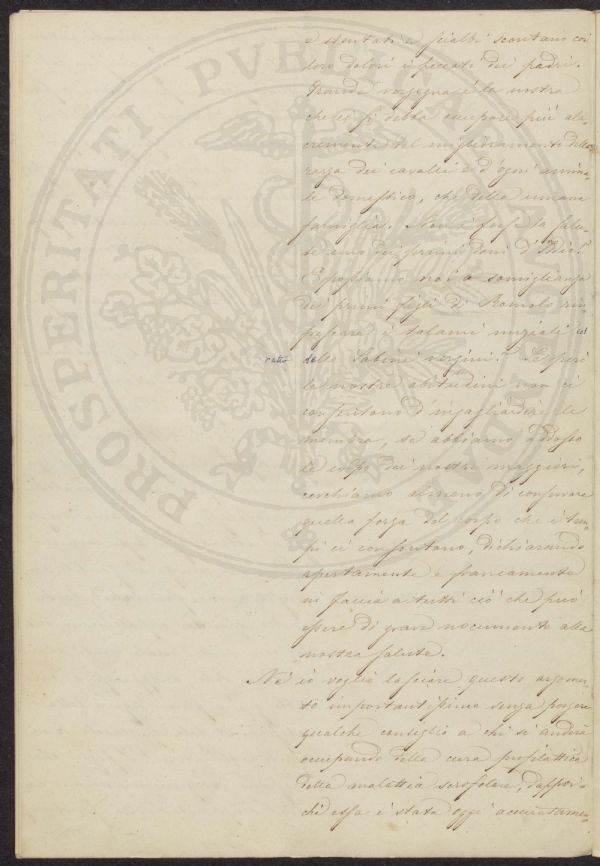 e stentati e scialbi scontano coi
loro dolori i peccati dei padri.
Grande vergogna è la nostra
che ci si debba occupare più ala-
cremente del miglioramento della
razza dei cavalli e d'ogni anima-
le domestico, che della umana
famiglia. Non è forse la salu-
te uno dei primi doni d'Dio?
E possiamo noi a somiglianza
dei primi figli di Romolo rin-
frescare i talami nuziali col
ratto delle Sabine vergini? Se però
le nostre abitudini non ci
consentono d'ingagliardire le
membra, se abbiamo addosso
le colpe dei nostri maggiori,
cerchiamo almeno di conservare
quella forza del corpo che i tem-
pi ci consentano, dichiarando
apertamente e francamente
in faccia a tutti ciò che può
essere di grave nocumento alla
nostra salute.
Nè io voglio lasciare questo argomen-
to importantissimo senza porgere
qualche consiglio a chi si andrà
occupando della cura profilattica
della malattia scrofolare, dappoi-
chè essa è stata oggi accuratame-
PROSPERITATI PVBLICAE